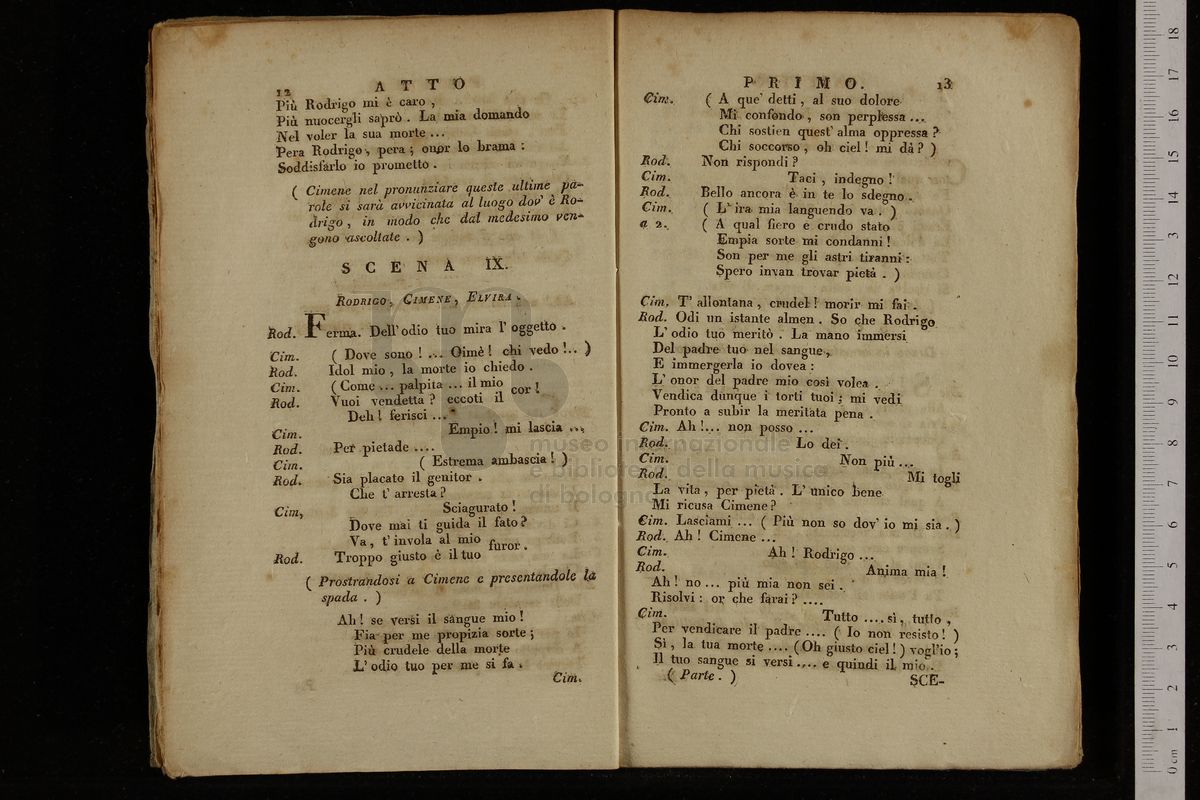 12 ATTO
Più Rodrigo mi è caro ,
Più nuocergli saprò . La mia domando
Nel voler la sua morte ...
Pera Rodrigo , pera ; onor lo brama :
Soddisfarlo io prometto .
( Cimene nel pronunziare queste ultime pa-
role si sarà avvicinata al luogo dov' è Ro-
drigo , in modo che dal medesimo ven-
gono ascoltate . )
SCENA IX.
RODRIGO, CIMENE, ELVIRA.
Rod. Ferma. Dell' odio tuo mira l' oggetto .
Cim. ( Dove sono ! ... Oimè ! chi vedo !.. )
Rod. Idol mio , la morte io chiedo .
Cim. ( Come ... palpita ... il mio cor !
Rod. Vuoi vendetta ? eccoti il
Deh ! ferisci ...
Cim. Empio ! mi lascia ...
Rod. Per pietade ....
Cim. ( Estrema ambascia ! )
Rod. Sia placato il genitor .
Che t' arresta ?
Cim, Sciagurato !
Dove mai ti guida il fato ?
Va , t' invola al mio furor .
Rod. Troppo giusto è il tuo
( Prostrandosi a Cimene e presentandole la
spada . )
Ah ! se versi il sangue mio !
Fia per me propizia sorte ;
Più crudele della morte
L' odio tuo per me si fa .
Cim.
PRIMO. 13
Cim. ( A que' detti , al suo dolore
Mi confondo , son perplessa ...
Chi sostien quest' alma oppressa ?
Chi soccorso , oh ciel ! mi dà ? )
Rod. Non rispondi ?
Cim. Taci , indegno !
Rod. Bello ancora è in te lo sdegno .
Cim. ( L' ira mia languendo va . )
a 2. ( A qual fiero e crudo stato
Empia sorte mi condanni !
Son per me gli astri tiranni :
Spero invan trovar pietà . )
Cim. T' allontana , crudel ! morir mi fai .
Rod. Odi un istante almen . So che Rodrigo
L' odio tuo meritò . La mano immersi
Del padre tuo nel sangue ,
E immergerla io dovea :
L' onor del padre mio così volea .
Vendica dunque i torti tuoi ; mi vedi
Pronto a subir la meritata pena .
Cim. Ah !... non posso ...
Rod. Lo dei .
Cim. Non più ...
Rod. Mi togli
La vita , per pietà . L' unico bene
Mi ricusa Cimene ?
Cim. Lasciami ... ( Più non so dov' io mi sia . )
Rod. Ah ! Cimene ...
Cim. Ah ! Rodrigo ...
Rod. Anima mia !
Ah ! no ... più mia non sei .
Risolvi : or che farai ? ....
Cim. Tutto .... sì , tutto ,
Per vendicare il padre .... ( Io non resisto ! )
Sì , la tua morte .... ( Oh giusto ciel ! ) vogl'io ;
Il tuo sangue si versi .... e quindi il mio .
( Parte . ) SCE-
museo internazionale
e biblioteca della musica
di bologna
0 cm 1 2 3 4 5 6 7 8 9 10 11 12 13 14 15 16 17 18